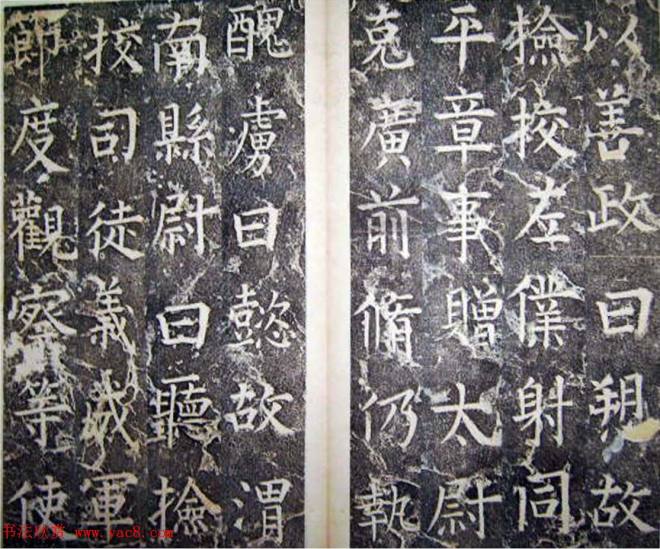 以善政曰朔故
撿挍左僕射同
平章事贈太尉
克廣前脩仍執
醜虜曰懿故渭
南縣尉曰聽撿
挍司徒義成軍
節度觀察等使
书法欣赏 www.yac8.com